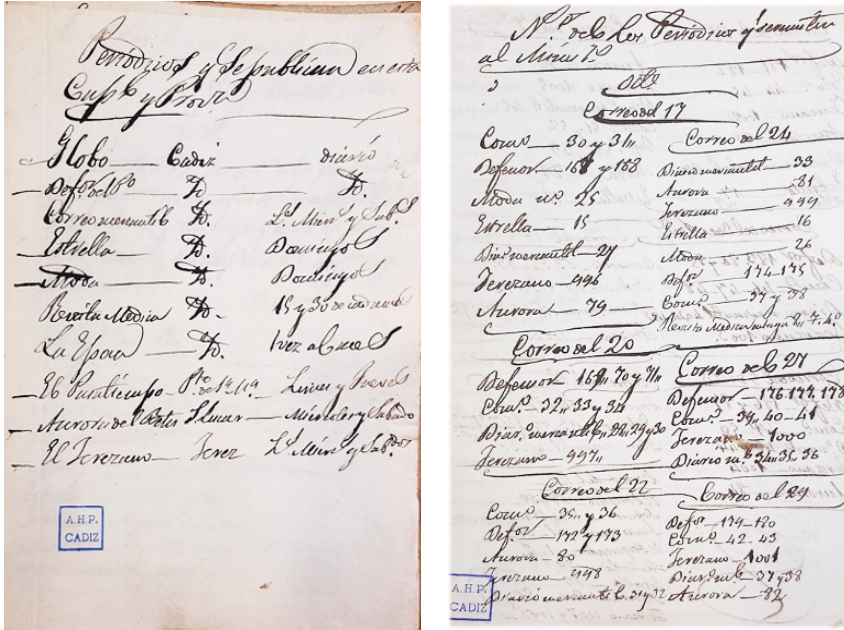 Periódicos q Se publican en esta
Cap.l y Prov.a
Globo — Cadiz — diario
Def.or del P.o — Yd. — Yd.
Correo mercantil Yd. L.s Mierc.s y Sab.s
Estrella — Yd. Domingos
Moda — Yd. Domingos
Revista Medica Yd. 15 y 30 de cada mes
La Epoca — Yd. 1 vez al mes
El Pasatiempo — P.to de S.ta M.a — Lunes y Jueves
Aurora del Betis S. Lucar — Miércoles y Sabado
El Jerezano — Jerez L.s Mierc.s y Sab.dos
A.H.P.
CADIZ
N.os de los Periódicos q.e se remiten
al Minis.o
Correo del 17
Correo — 30 y 31
Defensor — y 168
Moda nº 25
Estrella — 15
Diar.o mercantil — 27
Jerezano — 996
Aurora — 79
Correo del 20
Defensor — 169,, 70 y 71,,
Correo — 32,, 33 y 34
Diar.o mercantil,, 28,, 29 y 30
Jerezano — 997,,
Correo del 22
Correo — 35,, y 36
Def.or — 172 y 173
Aurora — 80
Jerezano — 998
Diario mercantil. 31 y 32
Correo del 24
Diario mercantil — 33
Aurora — 81
Jerezano — 999
Estrella — 16
Moda — 26
Def.or 174-175
Correo — 37 y 38
Revista Medica
Correo del 27
Defensor — 176. 177. 178
Correo — 39. 40 - 41
Jerezano — 1000
Diario m.l 34,, 35. 36
Correo del 29
Def.or — 179 - 180
Correo — 42 - 43
Jerezano — 1001
Diar.o m.l — 37 y 38
Aurora — 82
A.H.P.
CADIZ